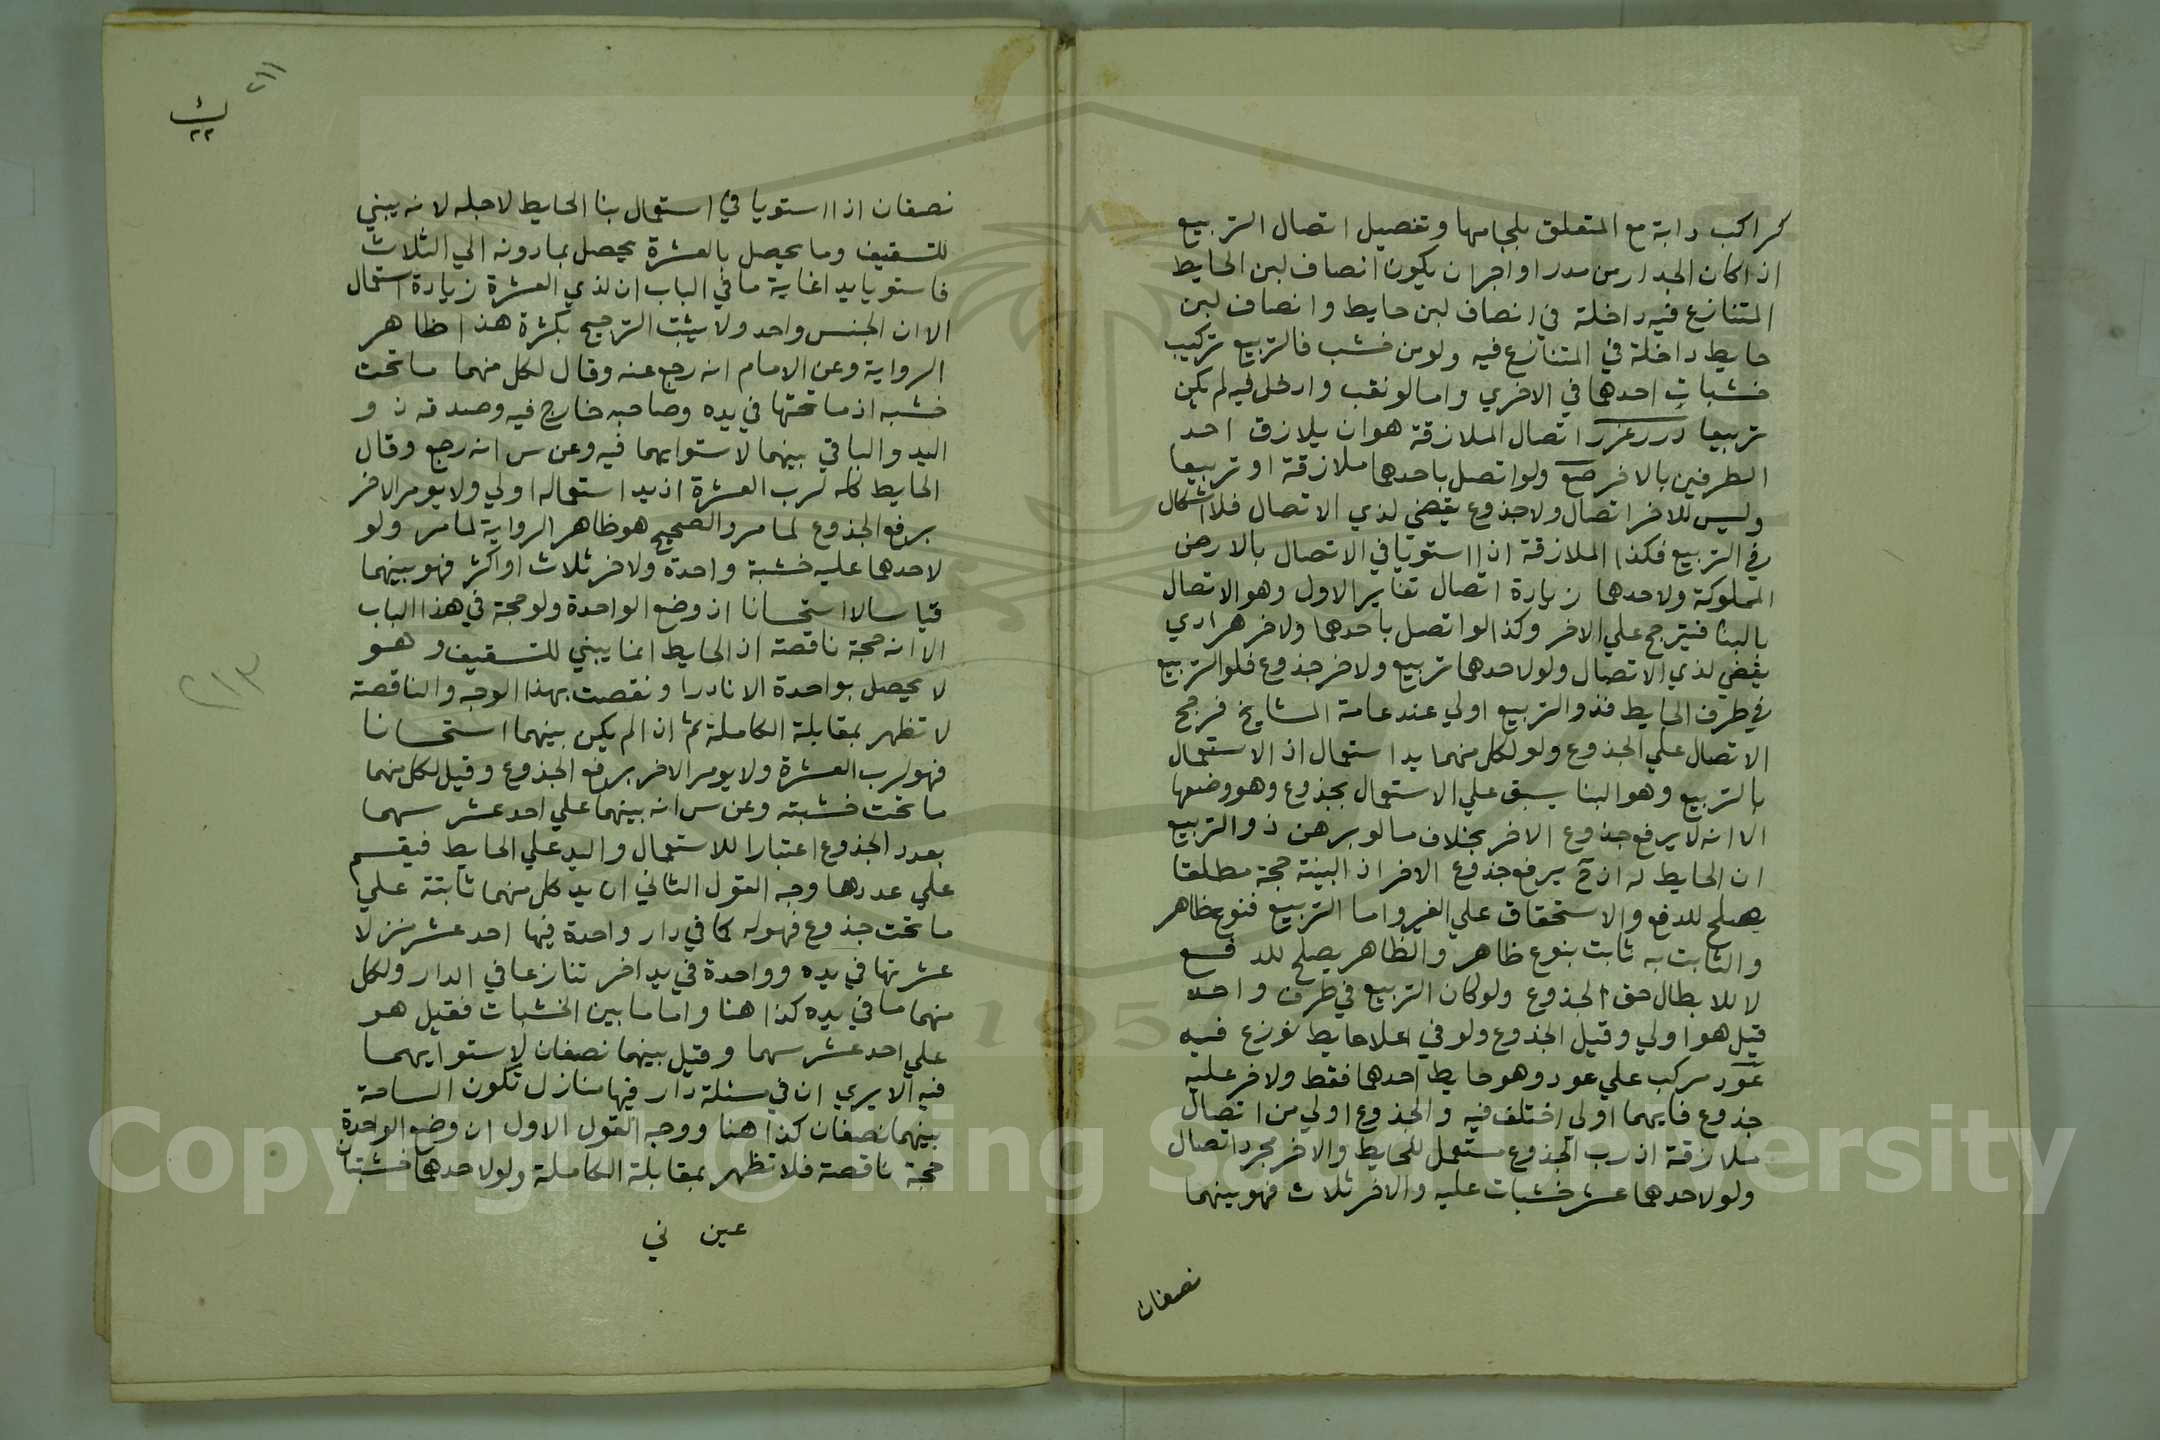 كراكب دابة مع المتعلق بلجامها وتفصيل اتصال التربيع
اذا كان الجدار من مدر او اجر ان يكون انصاف لبن الحايط
المتنازع فيه داخلة في انصاف لبن حايط وانصاف لبن
حايط داخلة في المتنازع فيه ولو من خشب فالتربيع تركيب
خشبات احدهما في الاخري واما لو نقب وادخل فيه لم يكن
تربيعا درر غرر اتصال الملازقة هو ان يلازق احد
الطرفين بالاخر صع ولو اتصل باحدهما ملازقة او تربيعا
وليس للاخر اتصال ولا جذوع يقضي لذي الاتصال فلا اشكال
في التربيع فكذا الملازقة اذا استويا في الاتصال بالارض
المملوكة ولاحدهما زيادة اتصال تغاير الاول وهو الاتصال
بالبنا فيترجح علي الاخر وكذا لو اتصل باحدهما ولاخر هرادي
يقضي لذي الاتصال ولو لاحدهما تربيع ولاخر جذوع فلو التربيع
في طرف الحايط فذو التربيع اولي عند عامة المشايخ فرجح
الاتصال علي الجذوع ولو لكل منهما يد استعمال اذ الاستعمال
بالتربيع وهو البنا يسبق علي الاستعمال بجذوع وهو وضعها
الا انه لا يرفع جذوع الاخر بخلاف ما لو برهن ذو التربيع
ان الحايط له اذ ح يرفع جذوع الاخر اذ البينة حجة مطلقا
يصلح للدفع والاستحقاق علي الغير واما التربيع فنوع ظاهر
والثابت به ثابت بنوع ظاهر والظاهر يصلح للدفع
لا للابطال حق الجذوع ولو كان التربيع في طرف واحد
قيل هو اولي وقيل الجذوع ولو في اعلا حايط نوزع فيه
عود مركب علي عود وهو حايط احدهما فقط ولاخر عليه
جذوع فايهما اولي اختلف فيه والجذوع اولي من اتصال
ملازقة اذ رب الجذوع مستعمل للحايط والاخر مجرد اتصال
ولو لاحدهما عشر خشبات عليه والاخر ثلاث فهو بينهما
نصفان
٢١١
٢٢
٢١٣
نصفان اذا استويا في استعمال بنا الحايط لاجله لانه يبني
للتسقيف وما يحصل بالعشرة يحصل بما دونه الي الثلاث
فاستويا يدا غاية ما في الباب ان لذي العشرة زيادة استعمال
الا ان الجنس واحد ولا يثبت الترجيح بكثرة هذا ظاهر
الرواية وعن الامام انه رجع عنه وقال لكل منهما ما تحت
خشبه اذ ما تحتها في يده وصاحبه خارج فيه وصدقه ذو
اليد والباقي بينهما لاستوايهما فيه وعن س انه رجع وقال
الحايط كله لرب العشرة اذ يد استعماله اولي ولا يومر الاخر
برفع الجذوع لما مر والصحيح هو ظاهر الرواية لما مر ولو
لاحدهما عليه خشبة واحدة ولاخر ثلاث او اكثر فهو بينهما
قياسا لا استحسانا اذ وضع الواحدة ولو حجة في هذا الباب
الا انه حجة ناقصة اذ الحايط انما يبني للتسقيف وهو
لا يحصل بواحدة الا نادرا ونقصت بهذا الوجه والناقصة
لا تظهر بمقابلة الكاملة ثم اذا لم يكن بينهما استحسانا
فهو لرب العشرة ولا يومر الاخر برفع الجذوع وقيل لكل منهما
ما تحت خشبته وعن س انه بينهما علي احد عشر سهما
بعدد الجذوع اعتبارا للاستعمال واليد علي الحايط فيقسم
علي عددها وجه القول الثاني ان يد كل منهما ثابتة علي
ما تحت جذوع فهو له كما في دار واحدة فيها احد عشر منزلا
عشرتها في يده وواحدة في يد اخر تنازعا في الدار ولكل
منهما ما في يده كذا هنا واما ما بين الخشبات فقيل هو
علي احد عشر سهما وقيل بينهما نصفان لاستوايهما
فيه الا يري ان في مسئلة دار فيها منازل تكون الساحة
بينهما نصفان كذا هنا ووجه القول الاول ان وضع الواحدة
حجة ناقصة فلا تظهر بمقابلة الكاملة ولو لاحدهما خشبتان
عين ني
1957
Copyright © King Saud University